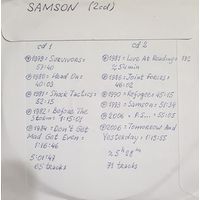 SAMSON (2cd)
cd 1
1979: Survivors: 57:40
1980: Head On: 40:03
1981: Shock Tactics: 52:15
1982: Before The Storm: 1:15:01
1984: Don't Get Mad Get Even: 1:16:46
5:01:49
65 tracks
cd 2
1981: Live At Reading:
≈ 51 min
1986: Joint Forces: 46:02
1990: Refugee: 45:15
1993: Samson: 51:34
2006: P.S...: 55:05
2006: Tomorrow And Yesterday: 1:19:55
71 tracks